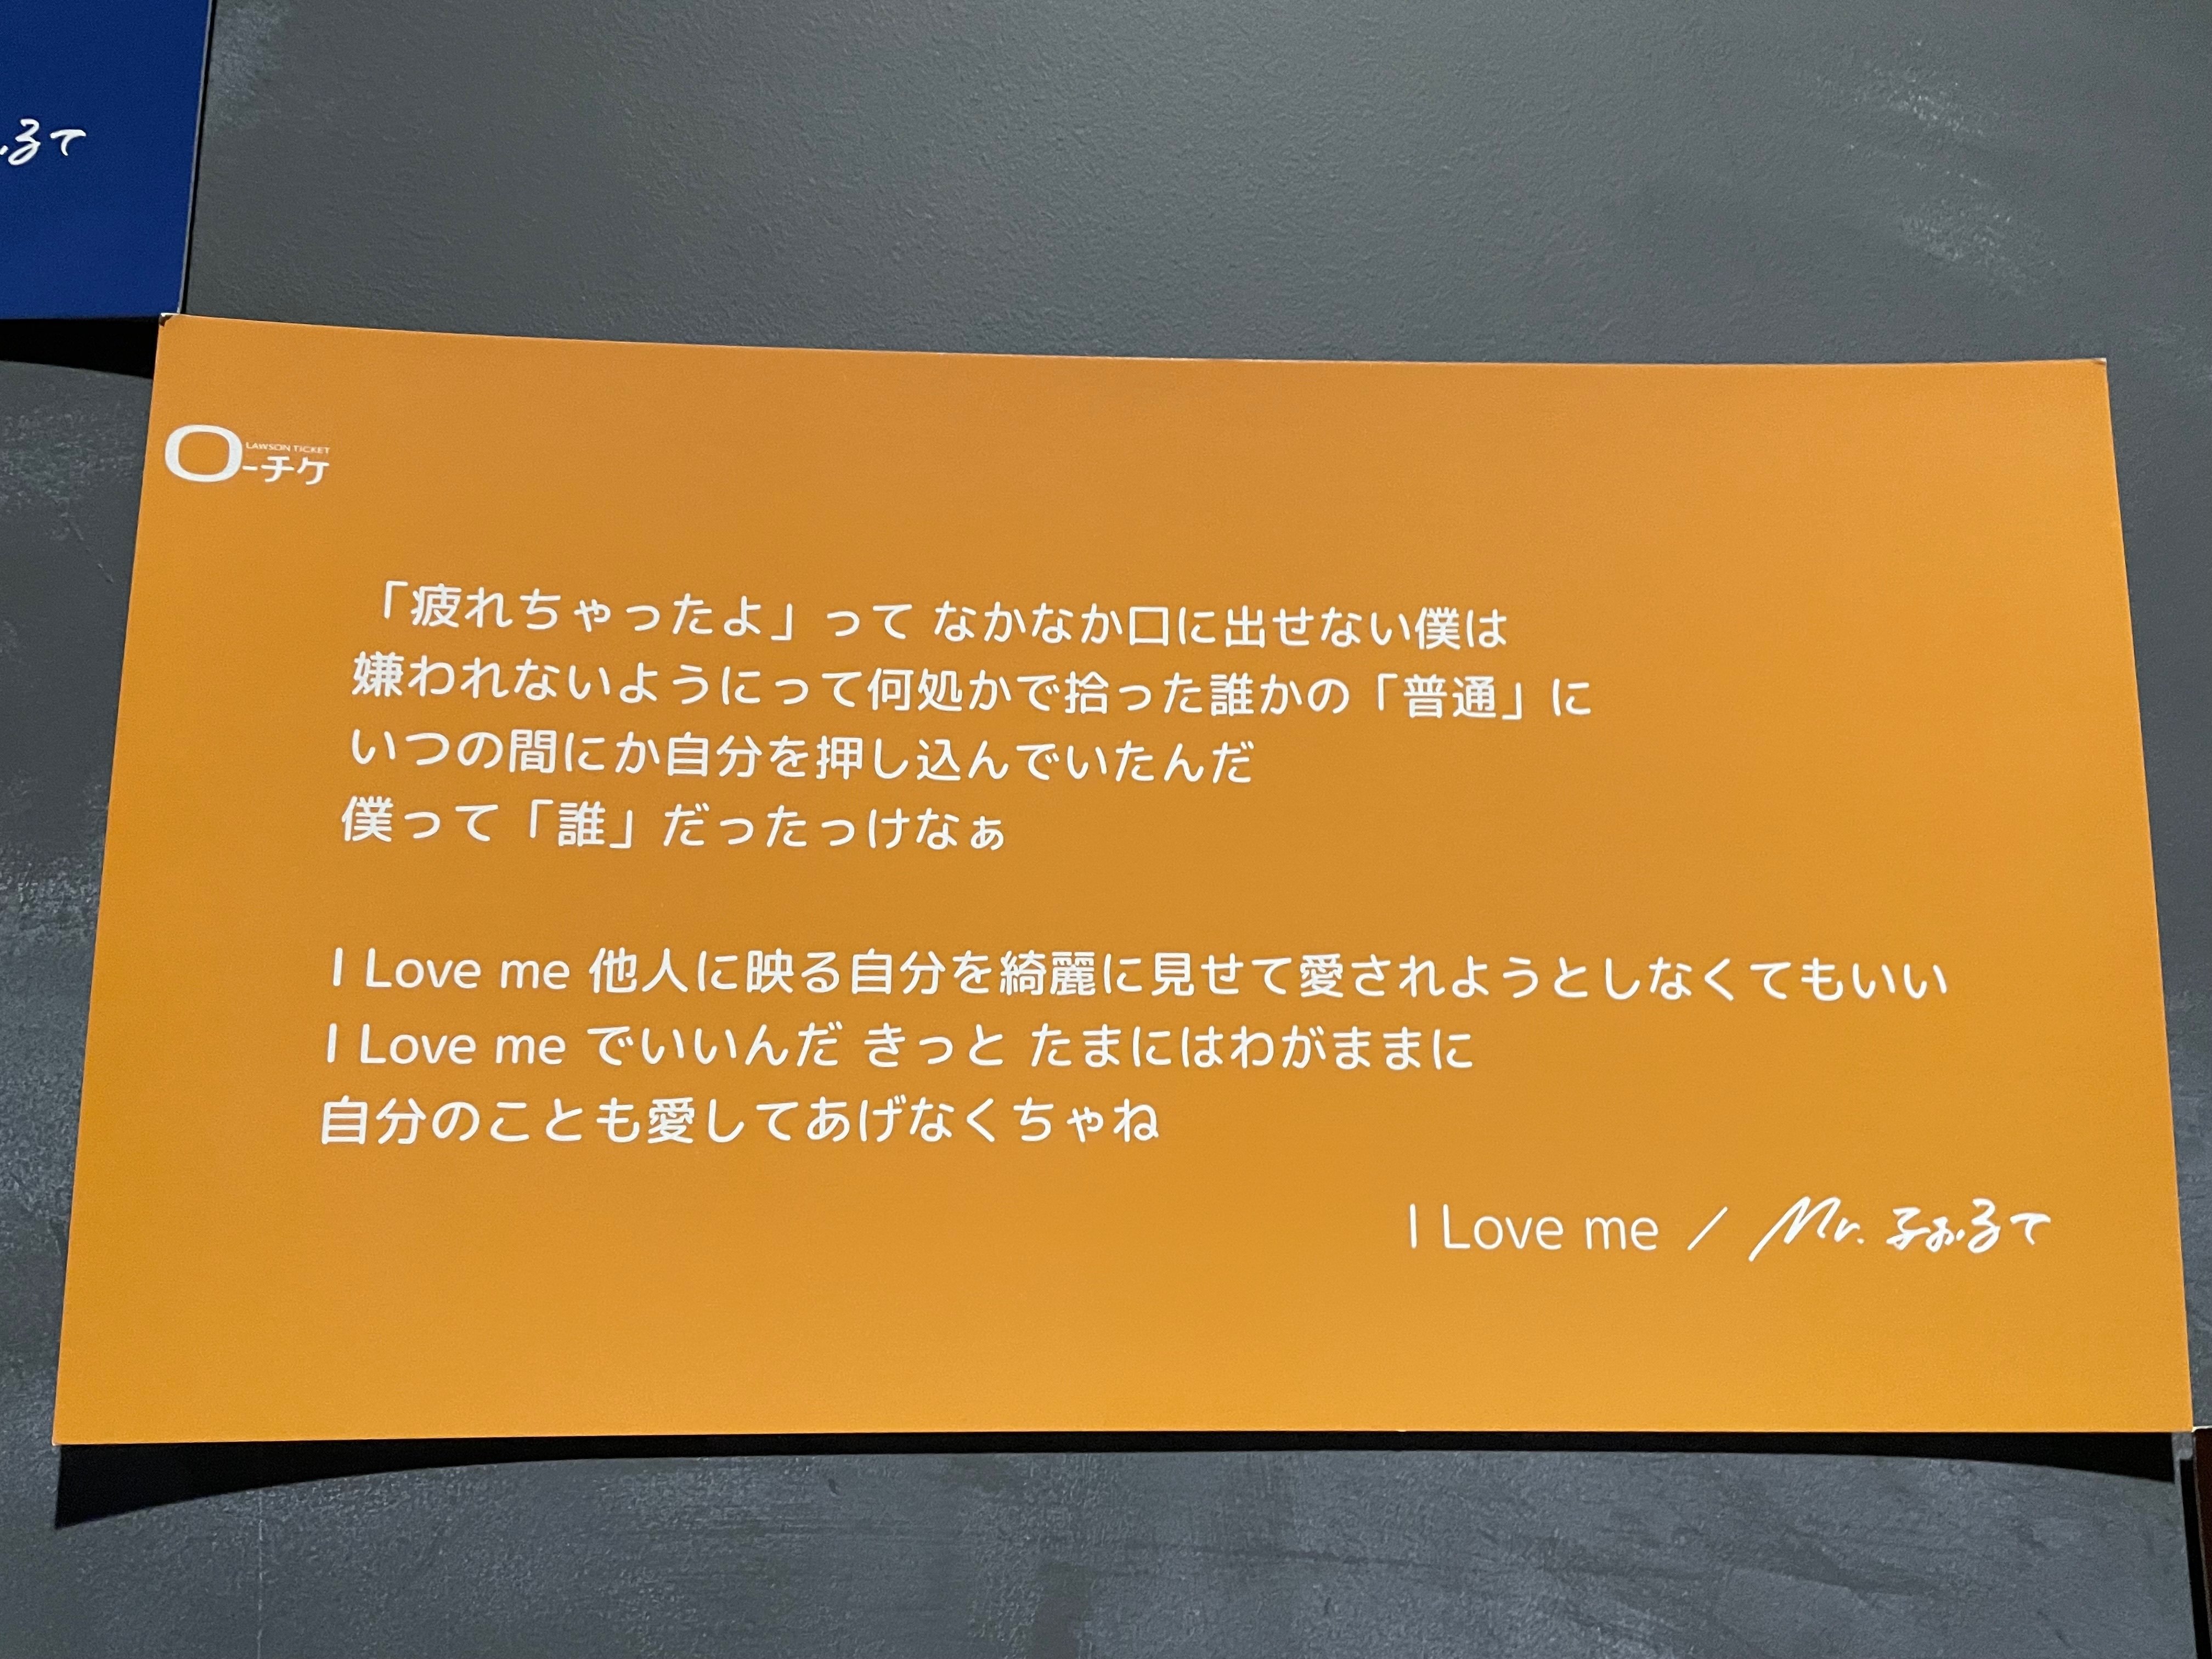 ふぉるて
LAWSON TICKET
ローチケ
「疲れちゃったよ」って なかなか口に出せない僕は
嫌われないようにって何処かで拾った誰かの「普通」に
いつの間にか自分を押し込んでいたんだ
僕って「誰」だったっけなぁ
I Love me 他人に映る自分を綺麗に見せて愛されようとしなくてもいい
I Love me でいいんだ きっと たまにはわがままに
自分のことも愛してあげなくちゃね
I Love me / Mr. ふぉるて